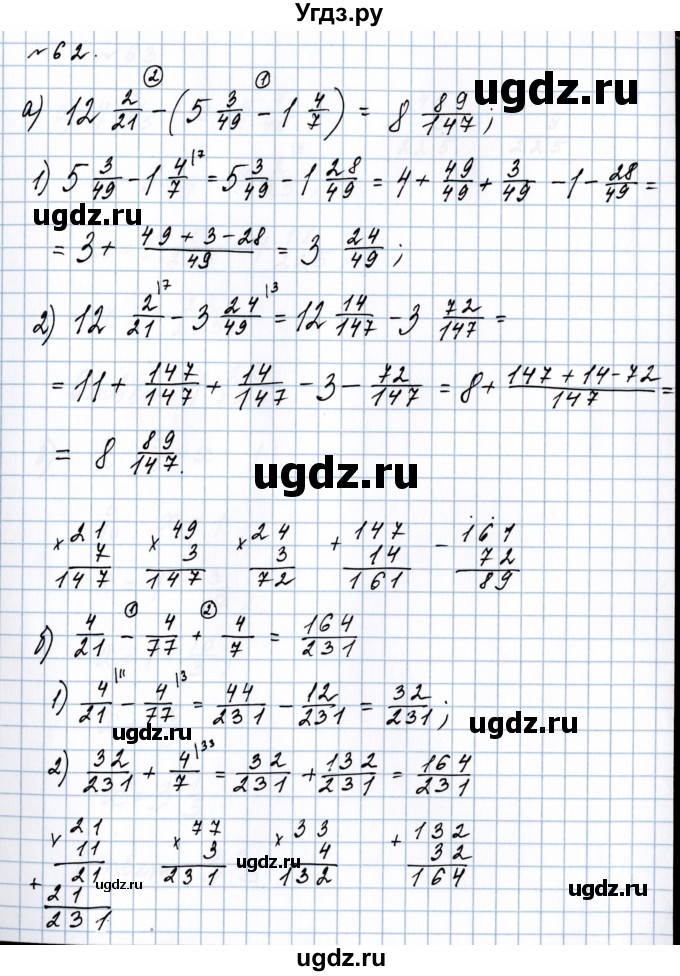 Угдз.ру
№62.
② ①
а) 12 2/21 − (5 3/49 − 1 4/7) = 8 89/147;
1) 5 3/49 − 1 4/7 |7 = 5 3/49 − 1 28/49 = 4 + 49/49 + 3/49 − 1 − 28/49 =
ugdz.ru
ugdz.ru
= 3 + (49 + 3 − 28)/49 = 3 24/49;
2) 12 2/21 |7 − 3 24/49 |3 = 12 14/147 − 3 72/147 =
= 11 + 147/147 + 14/147 − 3 − 72/147 = 8 + (147 + 14 − 72)/147 =
= 8 89/147.
ugdz.ru
× 21 × 49 × 24 + 147 − 161
7 3 3 14 72
147 147 72 161 89
① ②
б) 4/21 − 4/77 + 4/7 = 164/231
1) 4/21 |11 − 4/77 |3 = 44/231 − 12/231 = 32/231;
ugdz.ru
ugdz.ru
2) 32/231 + 4/7 |33 = 32/231 + 132/231 = 164/231
× 21 × 77 × 33 + 132
11 3 4 32
+ 21 231 132 164
21
231
ugdz.ru
ugdz.ru
ugdz.ru
ugdz.ru